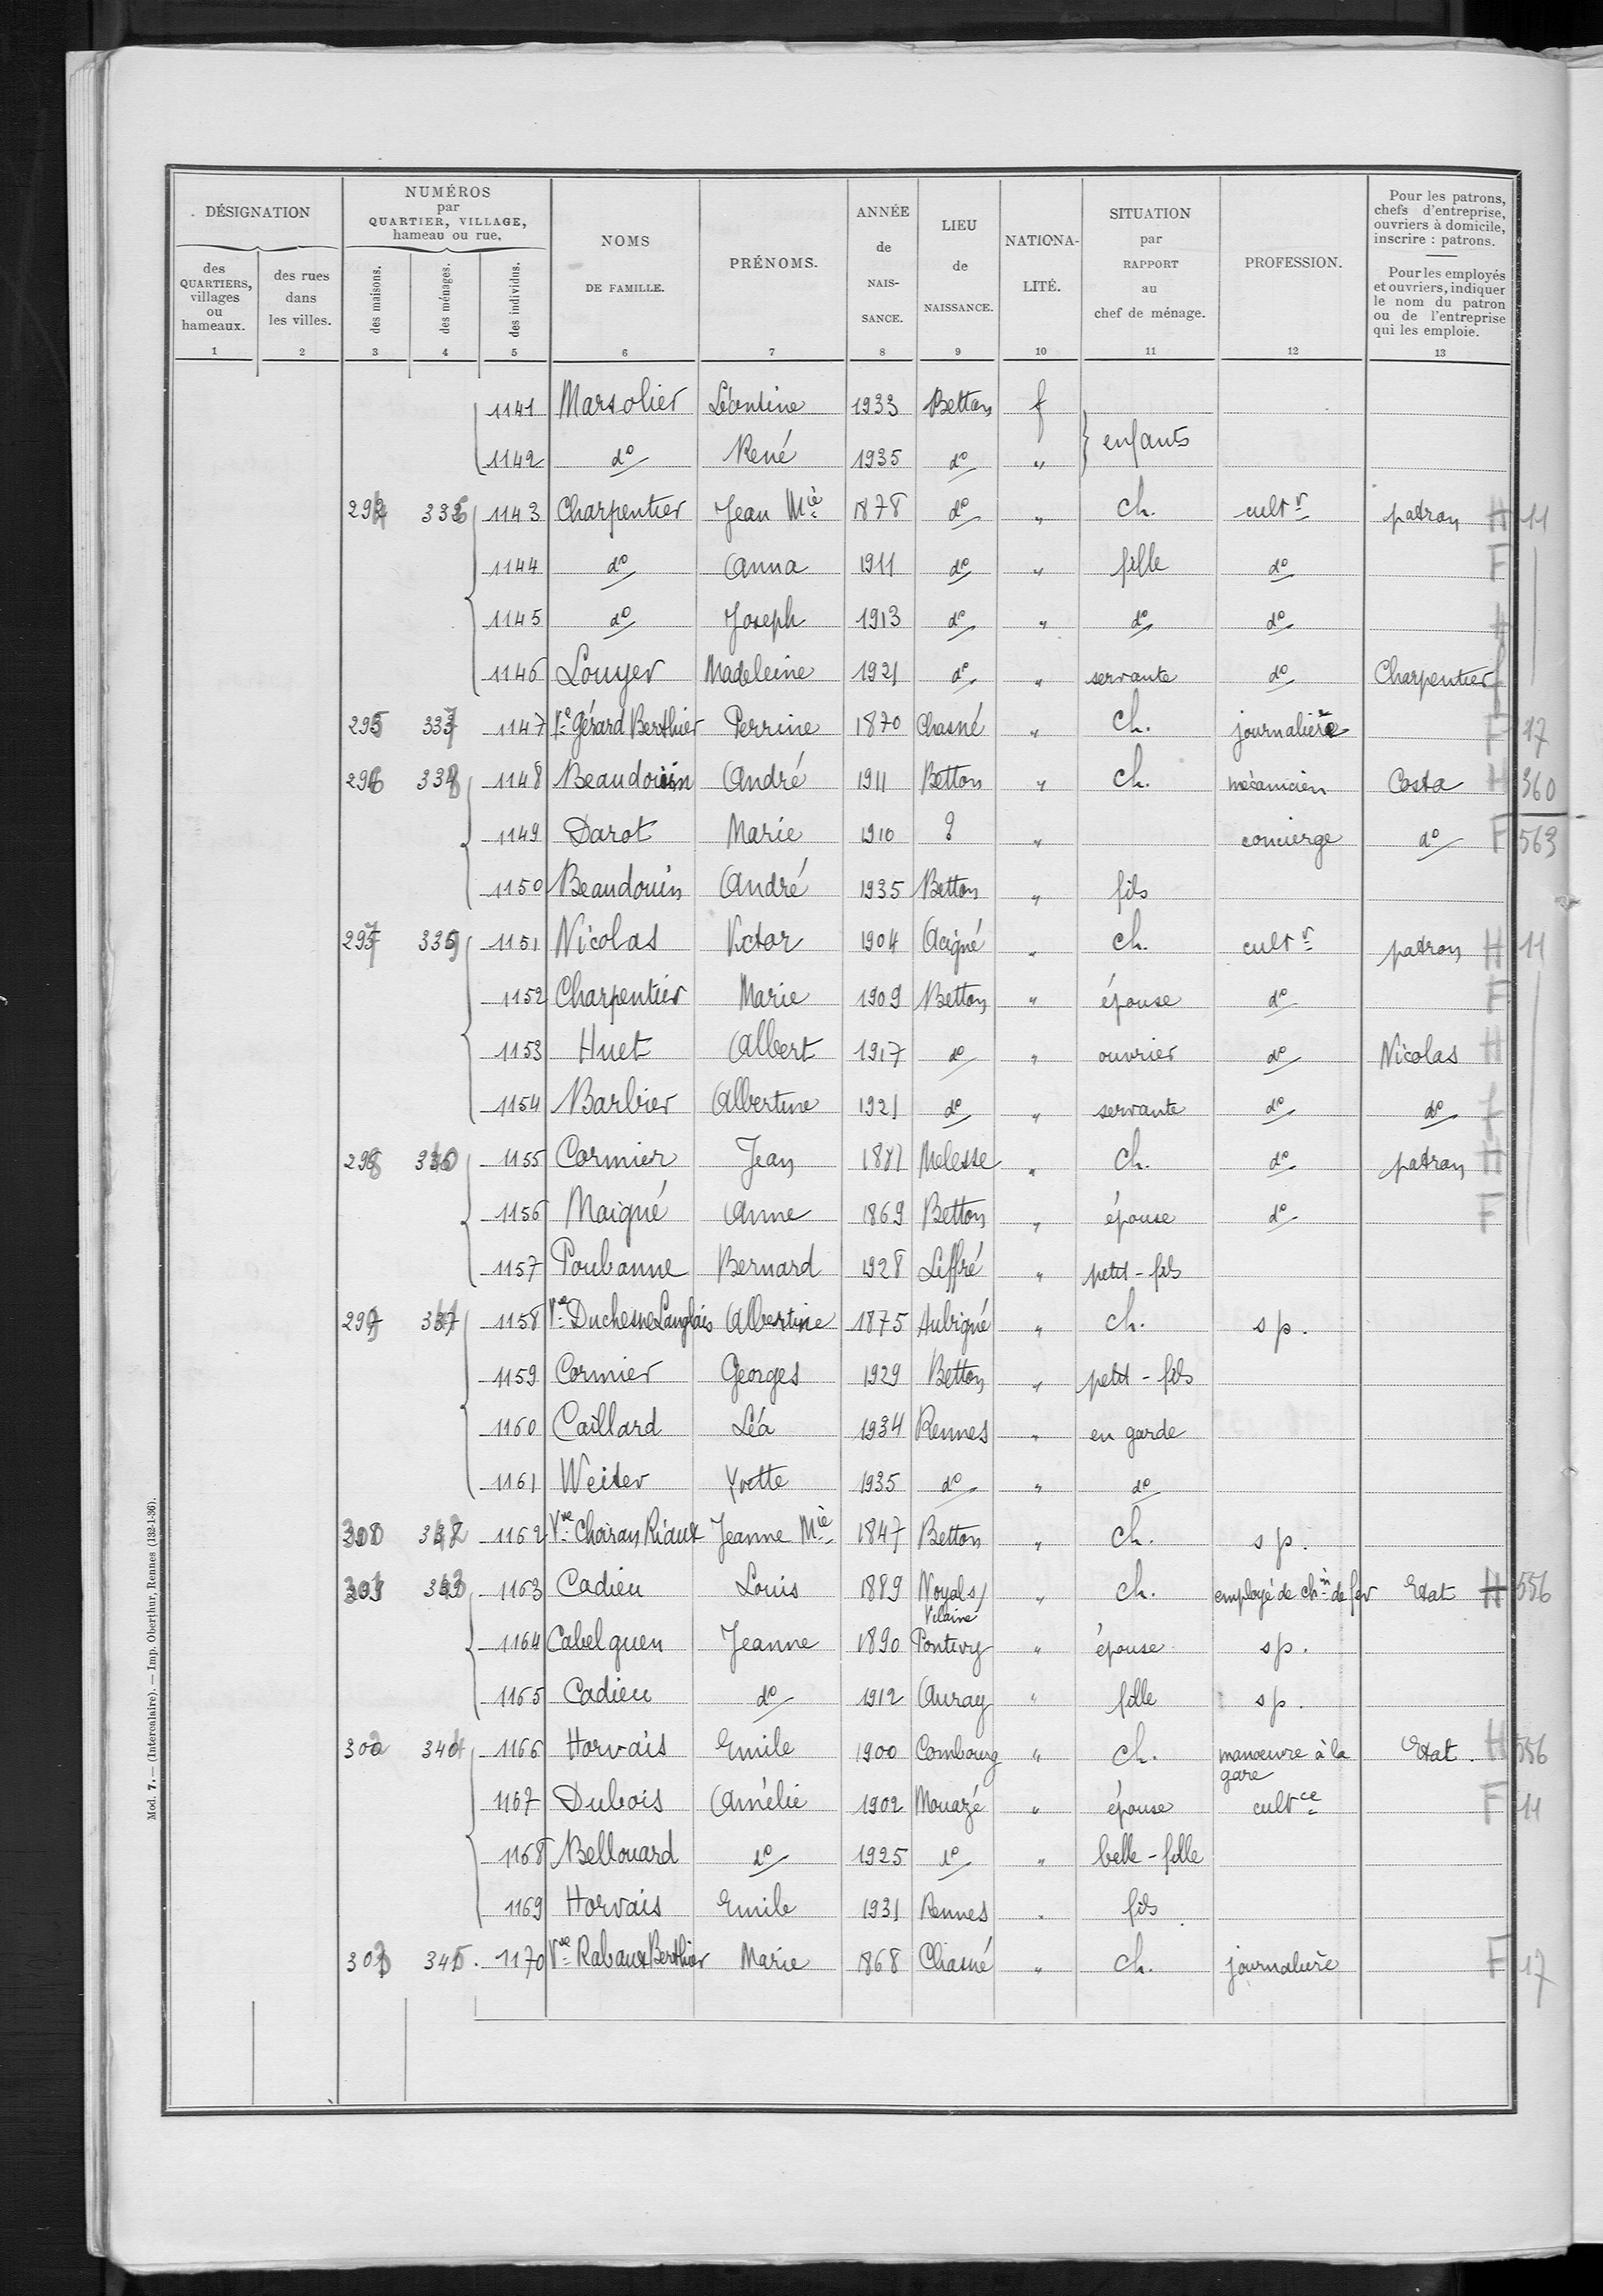 DÉSIGNATION
des QUARTIERS, villages ou hameaux.
des rues dans les villes.
NUMÉROS par QUARTIER, VILLAGE, hameau ou rue,
des maisons.
des ménages.
des individus.
NOMS DE FAMILLE.
PRÉNOMS.
ANNÉE de NAIS-SANCE.
LIEU de NAISSANCE.
NATIONA-LITÉ.
SITUATION par RAPPORT au chef de ménage.
PROFESSION.
Pour les patrons, chefs d'entreprise, ouvriers à domicile, inscrire : patrons.
Pour les employés et ouvriers, indiquer le nom du patron ou de l'entreprise qui les emploie.
1 2 3 4 5 6 7 8 9 10 11 12 13
1141 Marsolier Léontine 1933 Betton f
enfants
1142 do René 1935 do "
294 336 1143 Charpentier Jean Mie 1878 do " ch. cultr patron H 11
1144 do Anna 1911 do " fille do F
1145 do Joseph 1913 do " do do H
1146 Louyer Madeleine 1921 do " servante do Charpentier f
295 337 1147 Ve Gérard Berthier Perrine 1870 Chasné " ch. journalière F 17
296 338 1148 Beaudouin André 1911 Betton " ch. mécanicien Costa H 360
1149 Darot Marie 1910 ? " concierge do F 563
1150 Beaudouin André 1935 Betton " fils
297 339 1151 Nicolas Victor 1904 Acigné " ch. cultr patron H 11
1152 Charpentier Marie 1909 Betton " épouse do F
1153 Huet Albert 1917 do " ouvrier do Nicolas H
1154 Barbier Albertine 1921 do " servante do do f
298 340 1155 Cormier Jean 1881 Melesse " ch. do patron H
1156 Maigné Anne 1869 Betton " épouse do F
1157 Poubanne Bernard 1928 Liffré " petit-fils
299 341 1158 Vve Duchesne Langlais Albertine 1875 Aubigné " ch. s p.
1159 Cormier Georges 1929 Betton " petit-fils
1160 Caillard Léa 1934 Rennes " en garde
1161 Weiter Yvette 1935 do " do
300 342 1162 Vve Choisan Riaux Jeanne Mie 1847 Betton " ch. s p.
301 343 1163 Cadieu Louis 1889 Noyal s/ Vilaine " ch. employé de chin de fer Etat H 556
1164 Cabelguen Jeanne 1890 Pontivy " épouse s p.
1165 Cadieu do 1912 Auray " fille s p.
302 344 1166 Horvais Emile 1900 Combourg " ch. manœuvre à la gare Etat. H 556
1167 Dubois Amélie 1902 Mouazé " épouse cultce F 11
1168 Bellouard do 1925 do " belle-fille
1169 Horvais Emile 1931 Rennes " fils
303 345. 1170 Vve Rabaux Berthier Marie 1868 Chasné " ch. journalière F 17
Mod. 7. — (Intercalaire). — Imp. Oberthur, Rennes (132-1-36).